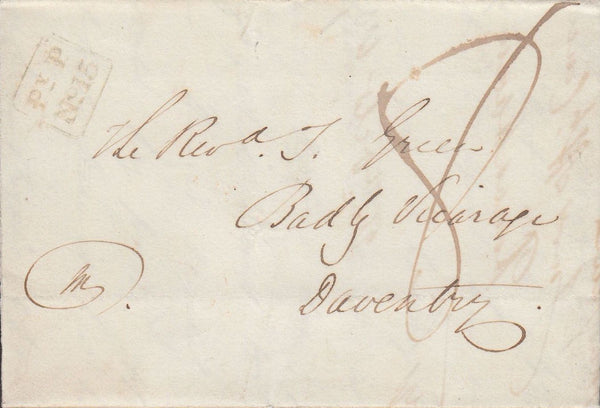 PY P
No 15
8
The Revd. T. Green
Badby Vicarage
Daventry.
m